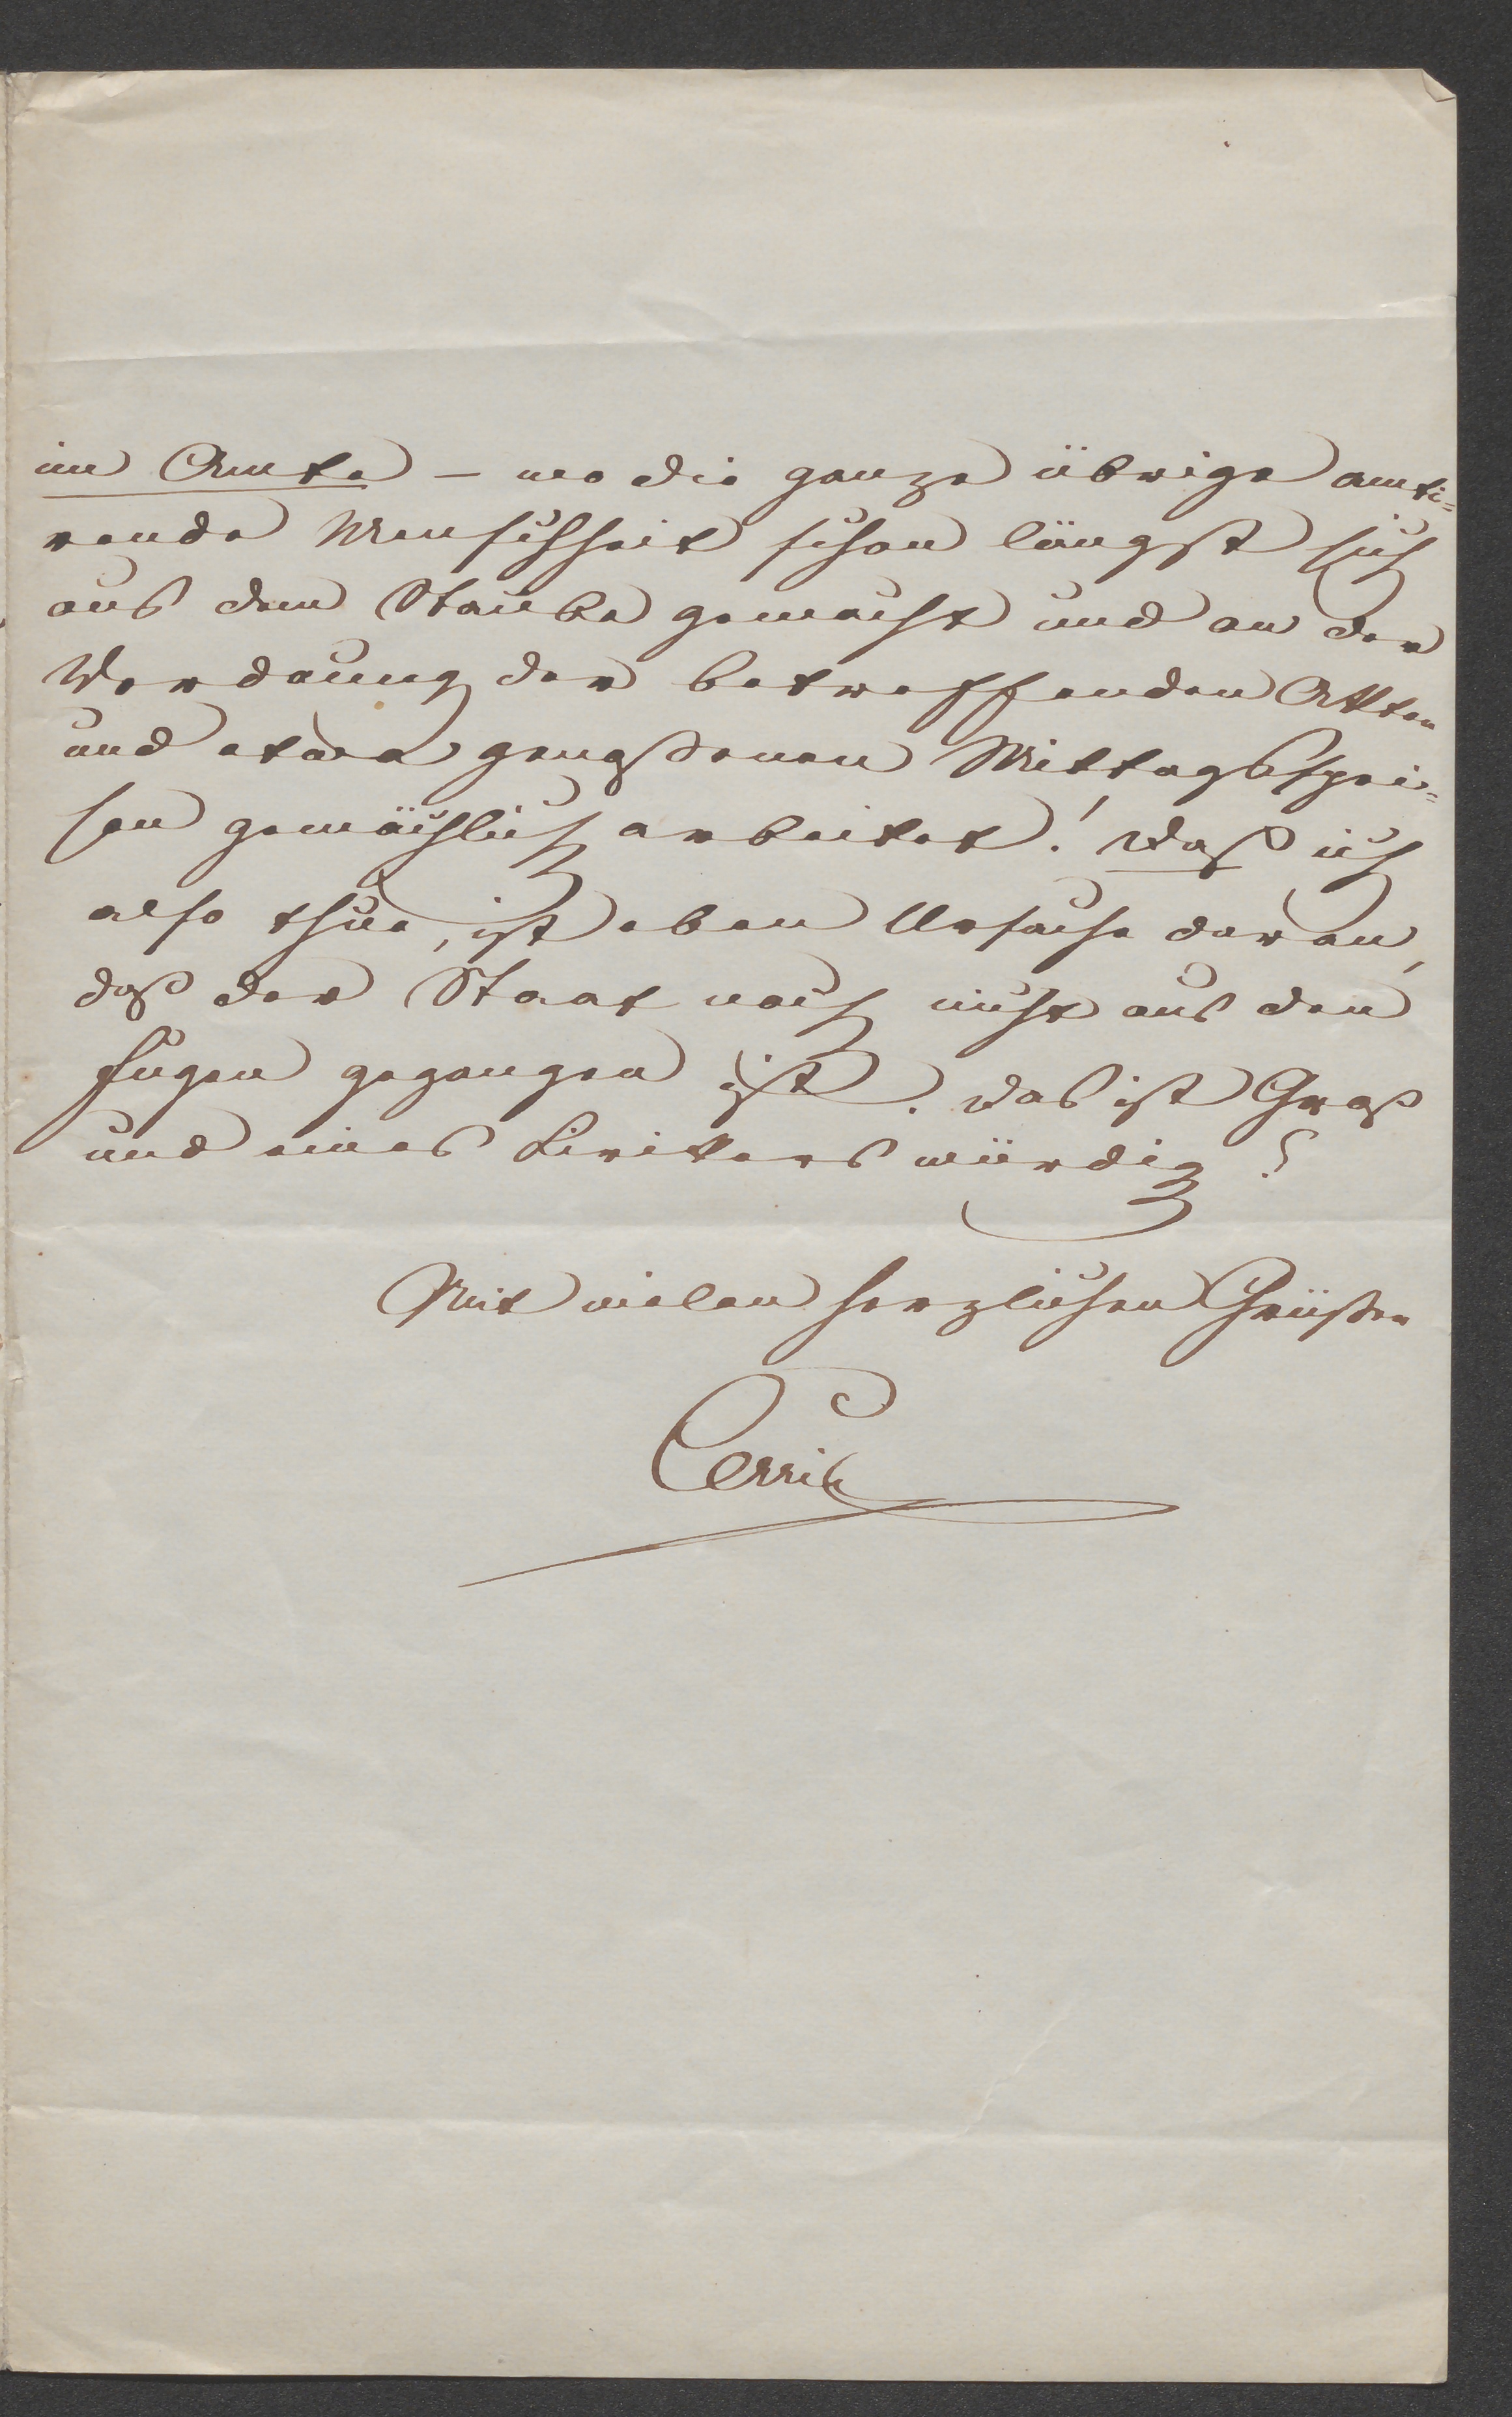 im Amte – wo die ganze übrige amti-
rende Menschheit schon längst sich
aus dem Staube gemacht und an der
Verdauung der betreffenden Akten
und etwa genoßenen Mittagsspei-
sen gemächlich arbeitet! Daß ich
also thue, ist eben Ursache daran,
daß der Staat noch nicht aus den
Fugen gegangen ist. Das ist Groß
und eines Lirikers würdig!
Mit vielen herzlichen Grüßen
Cerri